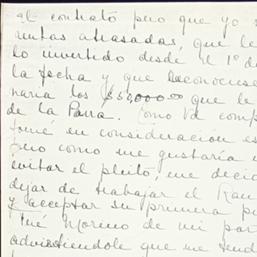 al contrato pero que yo
rentas atrasadas, que le
lo invertido desde el 1º de
la fecha y que reconociese
naria los $50,000.00 que le
de la Parra. Como Vd comp
tome en consideración es
pero como me gustaria
evitar el pleito, me decid
dejar de trabajar el Ran
y acceptar su primera p
Moreno de mi par
advirtiendole que me tend